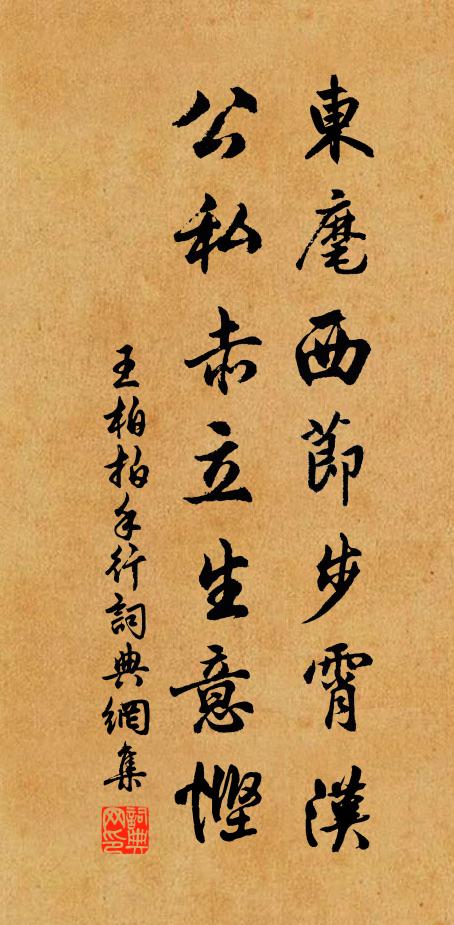 東麾西節步霄漢
公私赤立生意慳
王柏拍手行詞典網集
詞典网印